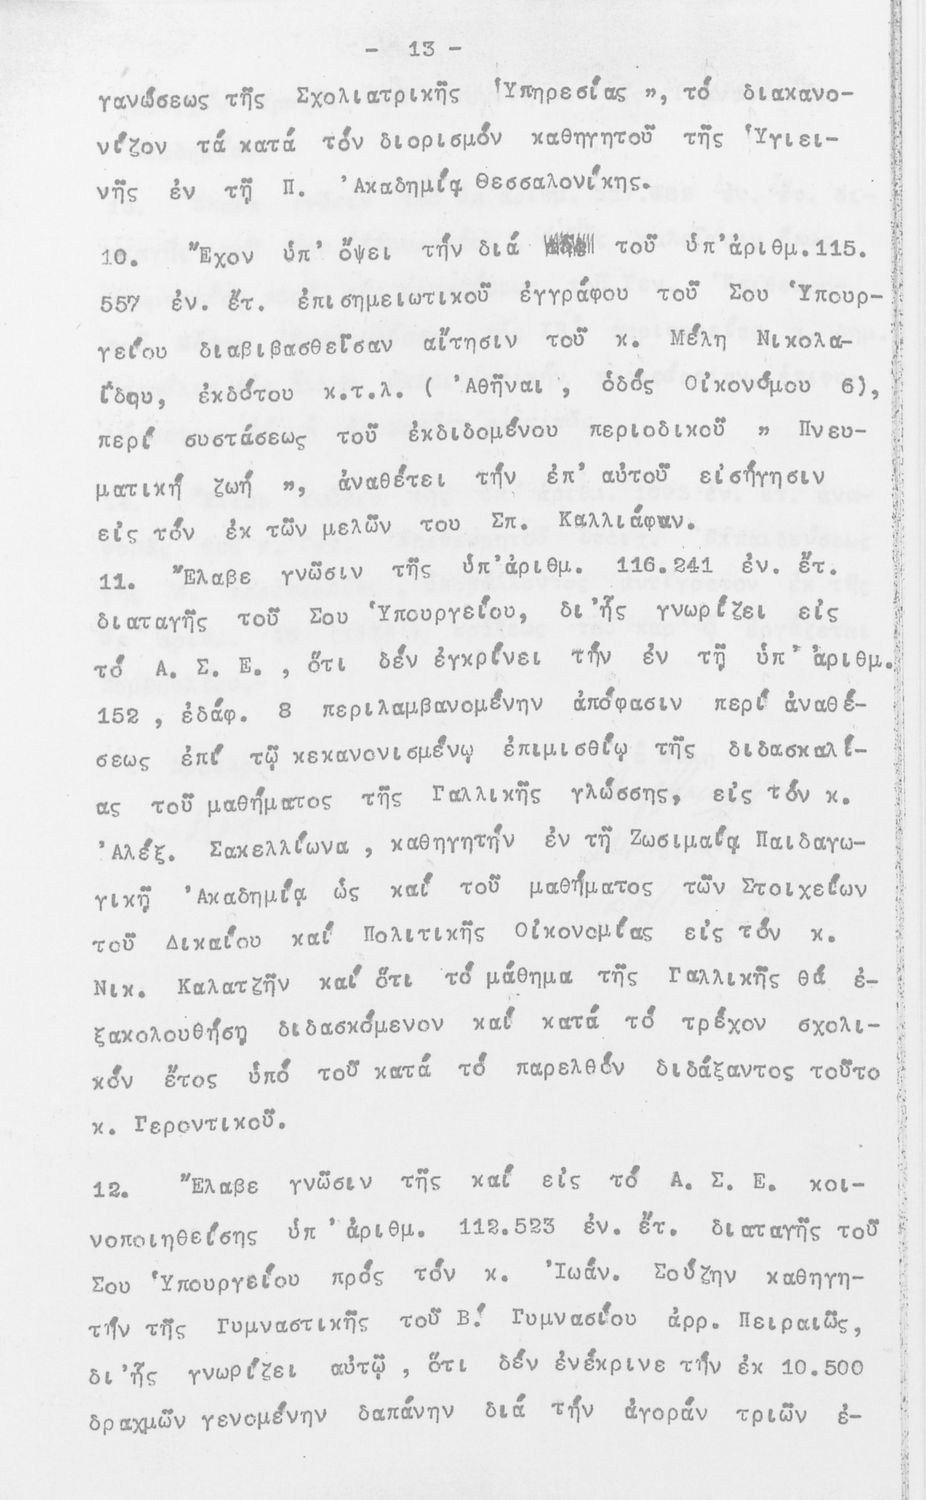 - 13 -
γανώσεως τῆς Σχολιατρικῆς Ὑπηρεσίας », τό διακανο-
νίζον τά κατά τόν διορισμόν καθηγητοῦ τῆς Ὑγιει-
νῆς ἐν τῇ Π. Ἀκαδημίᾳ Θεσσαλονίκης.
10. Ἔχον ὑπ' ὄψει τήν διά τοῦ ὑπ' ἀριθμ.115.
557 ἐν. ἔτ. ἐπισημειωτικοῦ ἐγγράφου τοῦ Σου Ὑπουρ-
γείου διαβιβασθεῖσαν αἴτησιν τοῦ κ. Μέλη Νικολα-
ΐδου, ἐκδότου κ.τ.λ. ( Ἀθῆναι , ὁδός Οἰκονόμου 6),
περί συστάσεως τοῦ ἐκδιδομένου περιοδικοῦ » Πνευ-
ματική ζωή », ἀναθέτει τήν ἐπ' αὐτοῦ εἰσήγησιν
εἰς τόν ἐκ τῶν μελῶν του Σπ. Καλλιάφαν.
11. Ἔλαβε γνῶσιν τῆς ὑπ' ἀριθμ. 116.241 ἐν. ἔτ.
διαταγῆς τοῦ Σου Ὑπουργείου, δι' ἧς γνωρίζει εἰς
τό Α. Σ. Ε. , ὅτι δέν ἐγκρίνει τήν ἐν τῇ ὑπ' ἀριθμ.
152 , ἐδάφ. 8 περιλαμβανομένην ἀπόφασιν περί ἀναθέ-
σεως ἐπί τῷ κεκανονισμένῳ ἐπιμισθίῳ τῆς διδασκαλί-
ας τοῦ μαθήματος τῆς Γαλλικῆς γλώσσης, εἰς τόν κ.
Ἀλέξ. Σακελλίωνα , καθηγητήν ἐν τῇ Ζωσιμαίᾳ Παιδαγω-
γικῇ Ἀκαδημίᾳ ὡς καί τοῦ μαθήματος τῶν Στοιχείων
τοῦ Δικαίου καί Πολιτικῆς Οἰκονομίας εἰς τόν κ.
Νικ. Καλατζῆν καί ὅτι τό μάθημα τῆς Γαλλικῆς θά ἐ-
ξακολουθήσῃ διδασκόμενον καί κατά τό τρέχον σχολι-
κόν ἔτος ὑπό τοῦ κατά τό παρελθόν διδάξαντος τοῦτο
κ. Γεροντικοῦ.
12. Ἔλαβε γνῶσιν τῆς καί εἰς τό Α. Σ. Ε. κοι-
νοποιηθείσης ὑπ' ἀριθμ. 112.523 ἐν. ἔτ. διαταγῆς τοῦ
Σου Ὑπουργείου πρός τόν κ. Ἰωάν. Σούζην καθηγη-
τήν τῆς Γυμναστικῆς τοῦ Β.' Γυμνασίου ἀρρ. Πειραιῶς,
δι' ἧς γνωρίζει αὐτῷ , ὅτι δέν ἐνέκρινε τήν ἐκ 10.500
δραχμῶν γενομένην δαπάνην διά τήν ἀγοράν τριῶν ἐ-